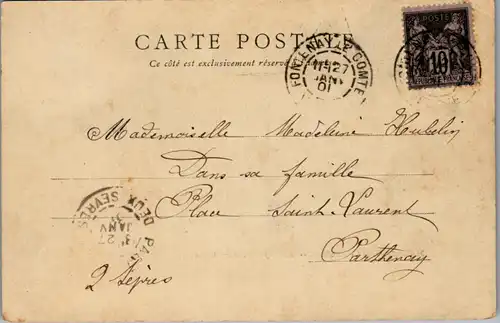 CARTE POSTALE
Ce côté est exclusivement réservé
FONTENAY LE COMTE
27
JANV
01
POSTE
10
Mademoiselle Madeleine Hubelin
Dans sa famille
Place Saint-Laurent
Parthenay
2 Sèvres
DEUX SEVRES
27
JANV